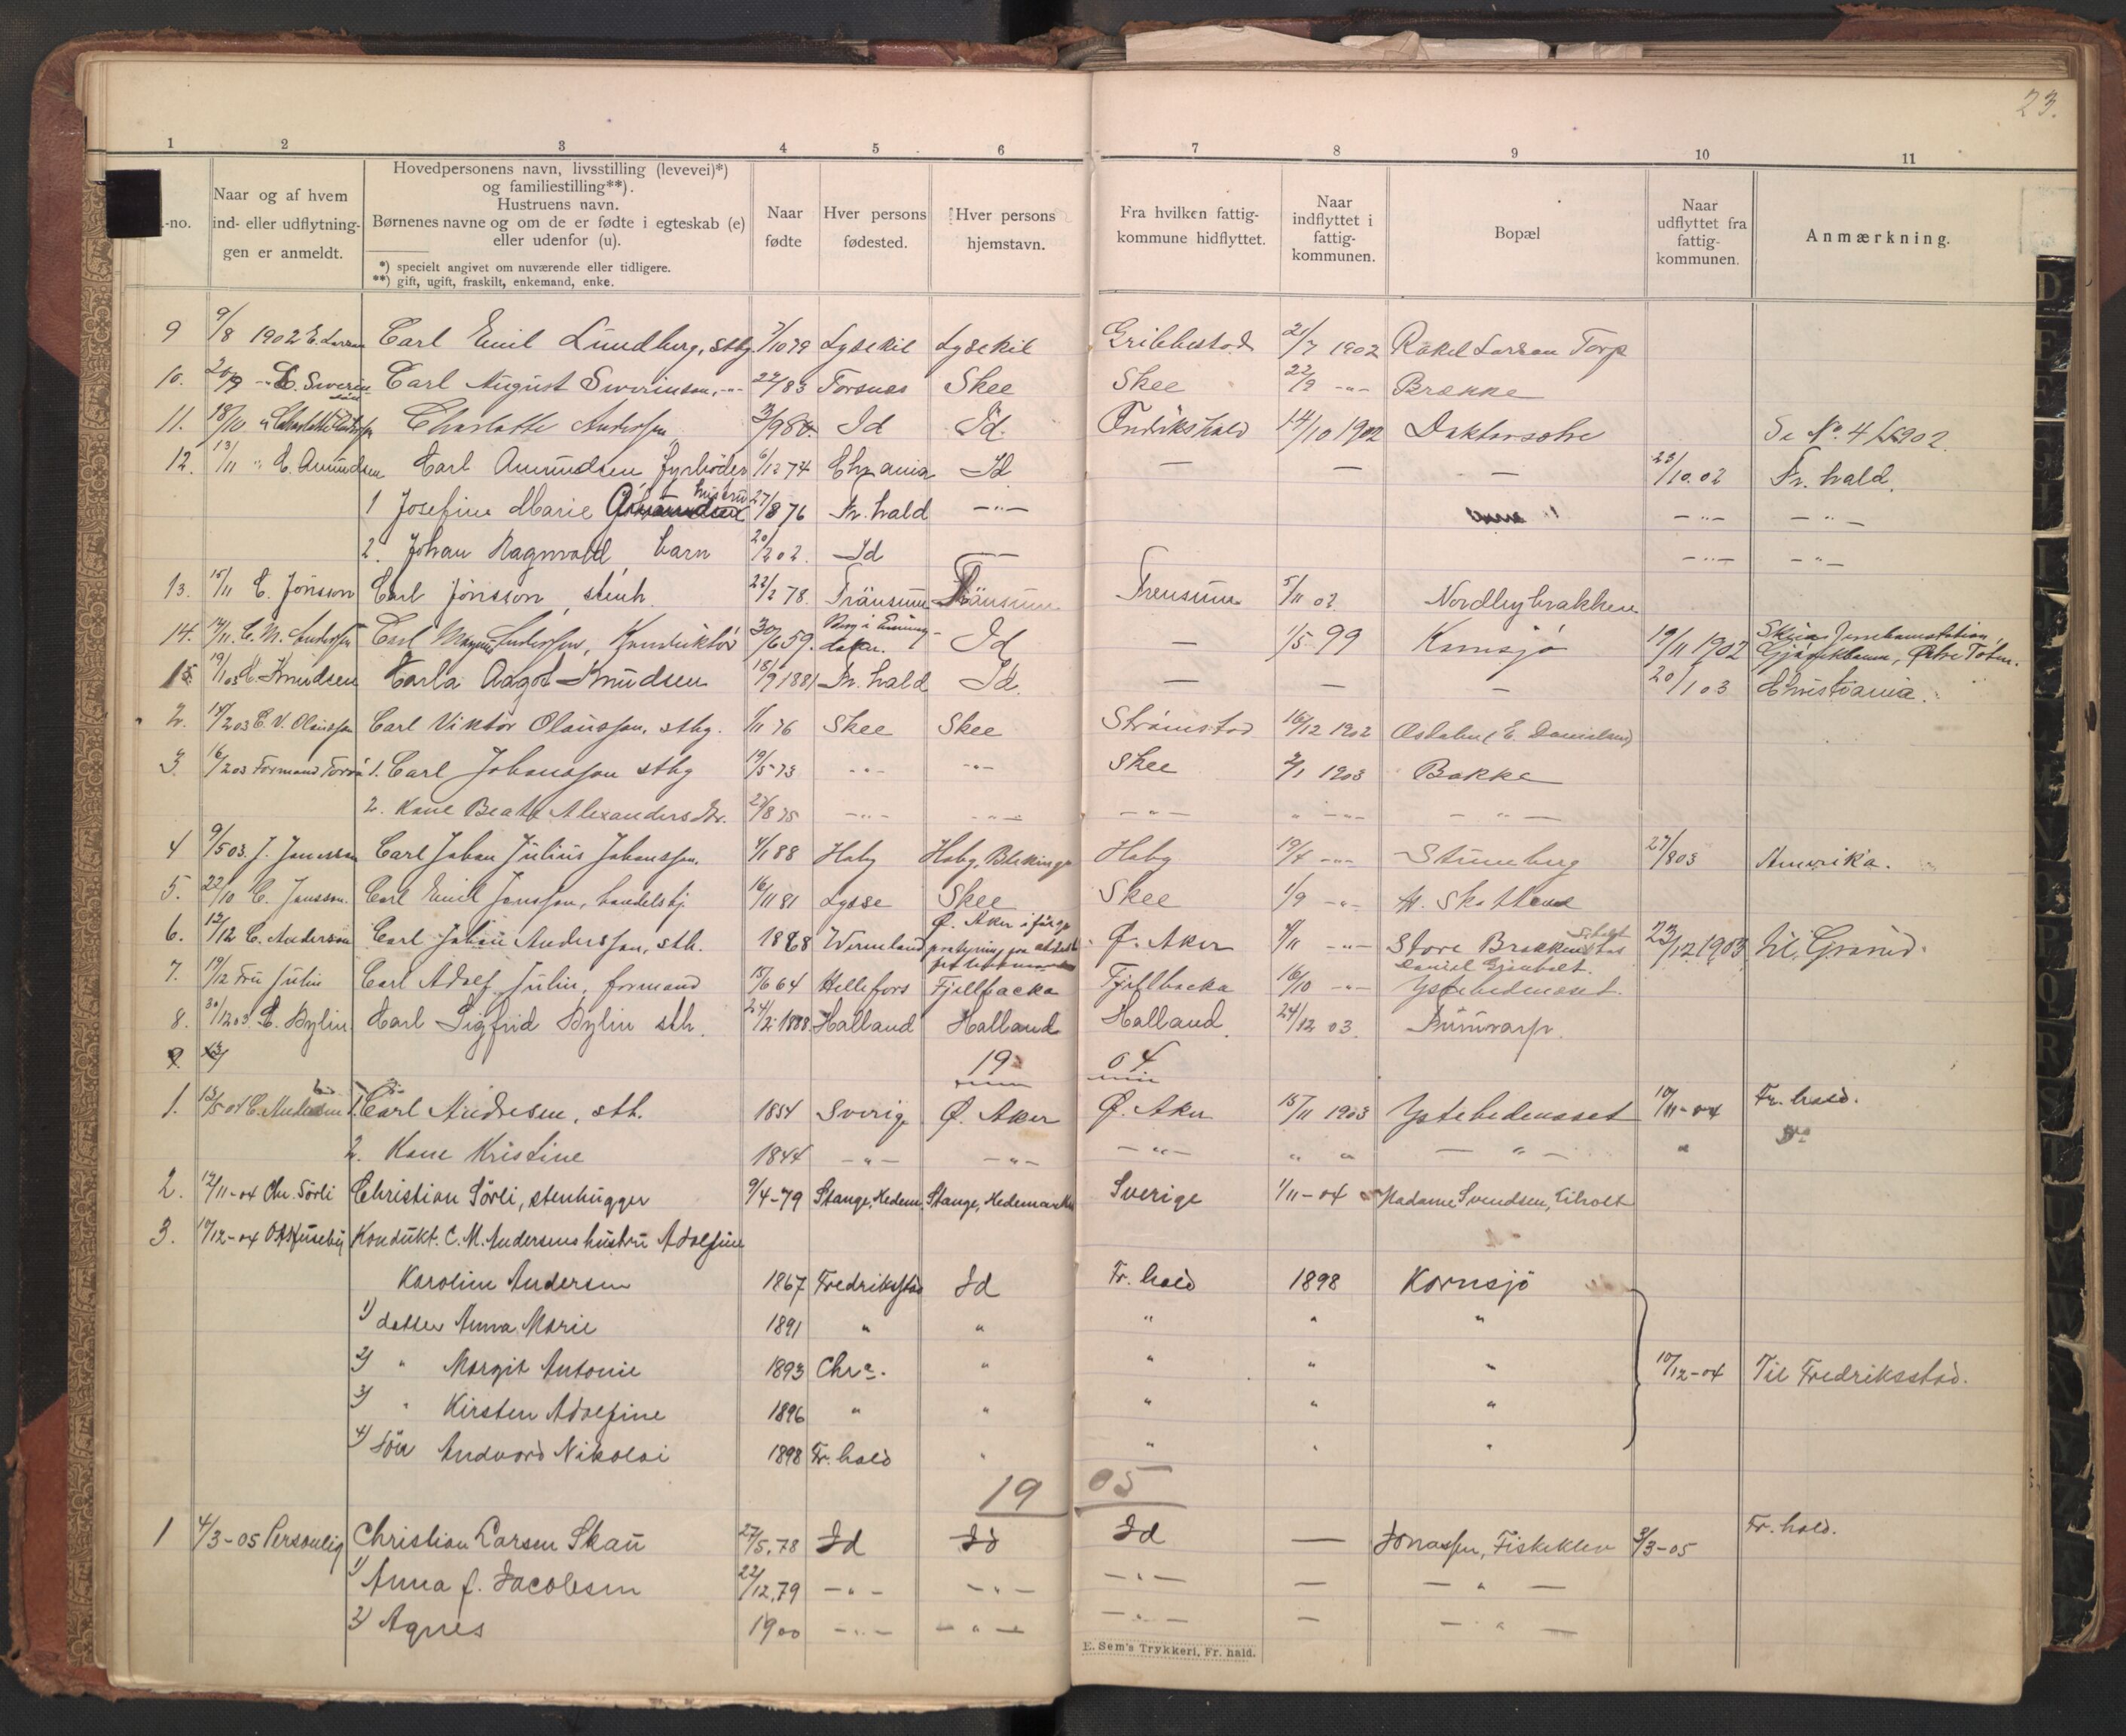 23.
1 2 3 4 5 6 7 8 9 10 11
-no.
Naar og af hvem
ind- eller udflytnin-
gen er anmeldt.
Hovedpersonens navn, livsstilling (levevei)*)
og familiestilling**).
Hustruens navn.
Børnenes navne og om de er fødte i egteskab (e)
eller udenfor (u).
*) specielt angivet om nuværende eller tidligere.
**) gift, ugift, fraskilt, enkemand, enke.
Naar
fødte
Hver persons
fødested.
Hver persons
hjemstavn.
Fra hvilken fattig-
kommune hidflyttet.
Naar
indflyttet i
fattig-
kommunen.
Bopæl
Naar
udflyttet fra
fattig-
kommunen.
Anmærkning.
9 9/8 1902 E. Larsen Carl Emil Lundberg, sthg. 7/10 79 Lysekil Lysekil Gribbestad 21/7 1902 Rakel Larsen Torp
10. 20/9 -"- Carl August Swerinson, -"- 83 Torsnes Skee Skee 22/9 -"- Brække
11. 18/10 " Charlotte Andersen Charlotte Andersen Id Id. Fredrikshald 14/10 1902 Se No. 4 1902.
12. 13/11 " C. Amundsen Carl Amundsen fyrbøder 6/12 74 Chrania Id — — — 23/10.02 Fr. hald.
1 Josefine Marie hustru 27/8 76 Fr. hald -"- -"- -"-
2. Johan Ragnvald, barn 20/2 02. Id — -"- -"-
13. 15/11 C. Jönsson Carl Jönsson, stenh. 22/2 78. Tränsum Tränsum Trensum 5/11 02 Nordbybrakken
14. 14/11. C. M. Anderssen Carl Magnus Anderssen, Konduktör 30/6 59. Id — 1/5 99 Kornsjö 19/11 1902 Østre Toten.
15 19/1 03 C. Knudsen Carla Aagot Knudsen 18/9 1881 Fr. hald Id. — — — 20/1 03 Christiania.
2. 14/2 03 C. V. Olausson Carl Viktor Olausson, sthg. 1/11 76 Skee Skee Strømstad 16/12 1902 E. Danielsen)
3. 16/2 03 Formand 1. Carl Johansson sthg 19/5 73 -"- -"- Skee 2/1 1903 Bakke
2. Kone Beate Alexandersdtr. 24/8 75 -"- -"- -"- " -"- - " -
4 9/5 03. J. Jonasson Carl Johan Julius Johansson. 4/1 88 Hoby Hoby, Blekinge Hoby 19/4 -"- Stumberg 27/8 03 Amerika.
5. 22/10 C. Jansson. Carl Emil Jansson, handelsbj. 16/11 81 Lysse Skee Skee 1/9 -"-
6. 12/12 C. Anderson Carl Johan Andersson, sth. 1868 Wermeland Ø. Aker Ø. Aker 4/11 -"- Store 23/12 1903 til Grimd.
7. 19/12 Fru Julin Carl Adolf Julin, formand 15/6 64 Hellefors Fjellbacka Fjillbacka 16/10 -"- Daniel Ystehedeaaset
8. 30/12 03. C. Bylin Carl Sigfrid Bylin sth. 24/2 1888 Halland Halland Halland 24/12 03.
19 04
1. 13/5 04 C. Andresen 1. Carl Andresen, sth. 1854 Sverig Ø. Aker Ø. Aker 15/11 1903 Ystehedeaaset 10/11-04 Fr. hald.
2. Kone Kristine 1844 -"- -"- -"- " " - " - "
2. 12/11-04 Chr. Sörli Christian Sörli, stenhugger 9/4-79 Stange, Hedem. Stange, Hedemarken Sverige 1/11-04 Madame Svendsen, Liholt
3. 10/12-04 Kondukt. C. M. Andersens hustru Adolfine
Karoline Andersen 1867 Fredriksstad Id Fr. hald 1898 Kornsjö
1) datter Anna Marie 1891 " " " " "
2) " Margit Antonie 1893 Chra. " " " " 10/12-04 Til Fredriksstad.
3) " Kirsten Adolfine 1896 " " " " "
4) Sön Andvord Nikolai 1898 Fr. hald " " " "
19 05
1 4/3-05 Personlig Christian Larsen Skau 27/5.78 Id Id Id — Jonassen, Fiskeklev 3/3-05 Fr. hald.
1) Anna f. Jacobsen 22/12.79 -"- -"- -"- — - " -
2) Agnes 1900 -"- - " - -"- — - " -
E. Sem's Trykkeri, Fr. hald.